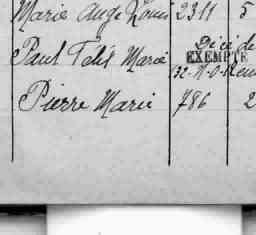 Marie Ange Louis 2311 5
Décédé
Paul Félix Marie EXEMPTÉ
Pierre Marie 786 2